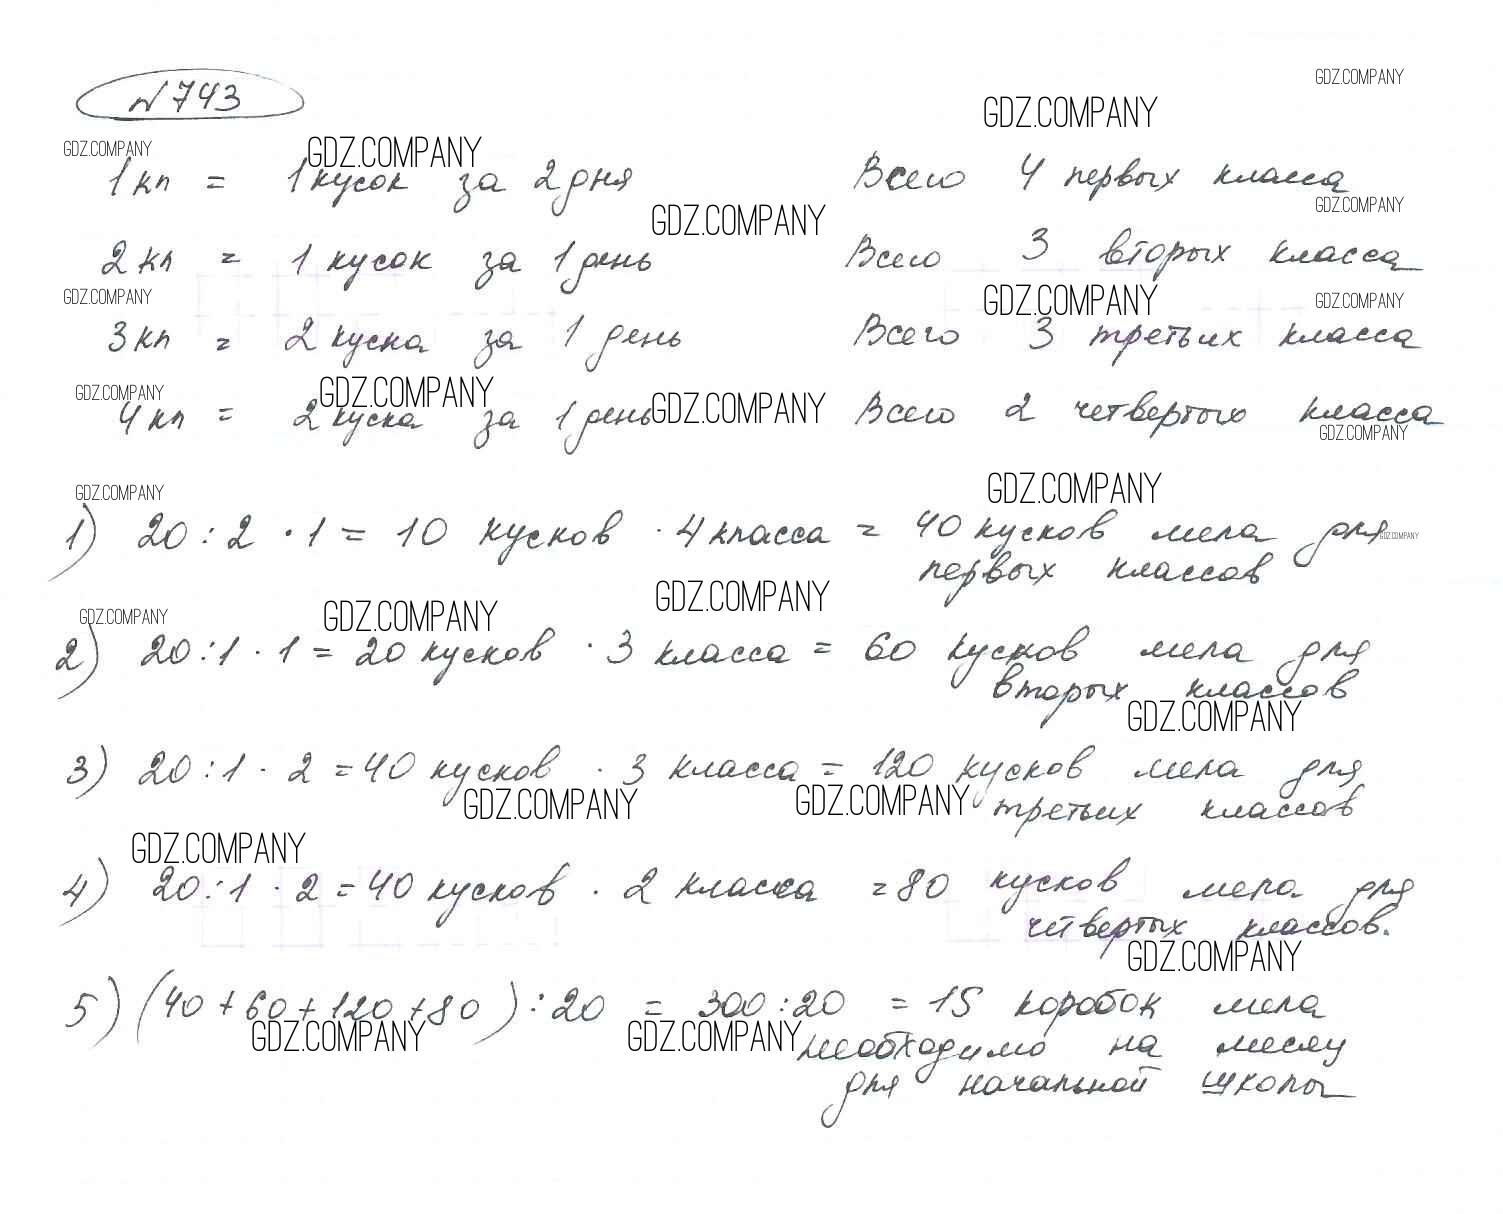 №743
GDZ.COMPANY
GDZ.COMPANY
GDZ.COMPANY GDZ.COMPANY
1 кл = 1 кусок за 2 дня Всего 4 первых класса
GDZ.COMPANY GDZ.COMPANY
2 кл = 1 кусок за 1 день Всего 3 вторых класса
GDZ.COMPANY GDZ.COMPANY GDZ.COMPANY
3 кл = 2 куска за 1 день Всего 3 третьих класса
GDZ.COMPANY GDZ.COMPANY GDZ.COMPANY
4 кл = 2 куска за 1 день Всего 2 четвертых класса
GDZ.COMPANY
GDZ.COMPANY GDZ.COMPANY
1) 20 : 2 · 1 = 10 кусков · 4 класса = 40 кусков мела для
GDZ.COMPANY
первых классов
GDZ.COMPANY GDZ.COMPANY GDZ.COMPANY
2) 20 : 1 · 1 = 20 кусков · 3 класса = 60 кусков мела для
вторых классов
GDZ.COMPANY
3) 20 : 1 · 2 = 40 кусков · 3 класса = 120 кусков мела для
GDZ.COMPANY GDZ.COMPANY
третьих классов
GDZ.COMPANY
4) 20 : 1 · 2 = 40 кусков · 2 класса = 80 кусков мела для
четвертых классов.
GDZ.COMPANY
5) (40 + 60 + 120 + 80) : 20 = 300 : 20 = 15 коробок мела
GDZ.COMPANY GDZ.COMPANY
необходимо на месяц
для начальной школы